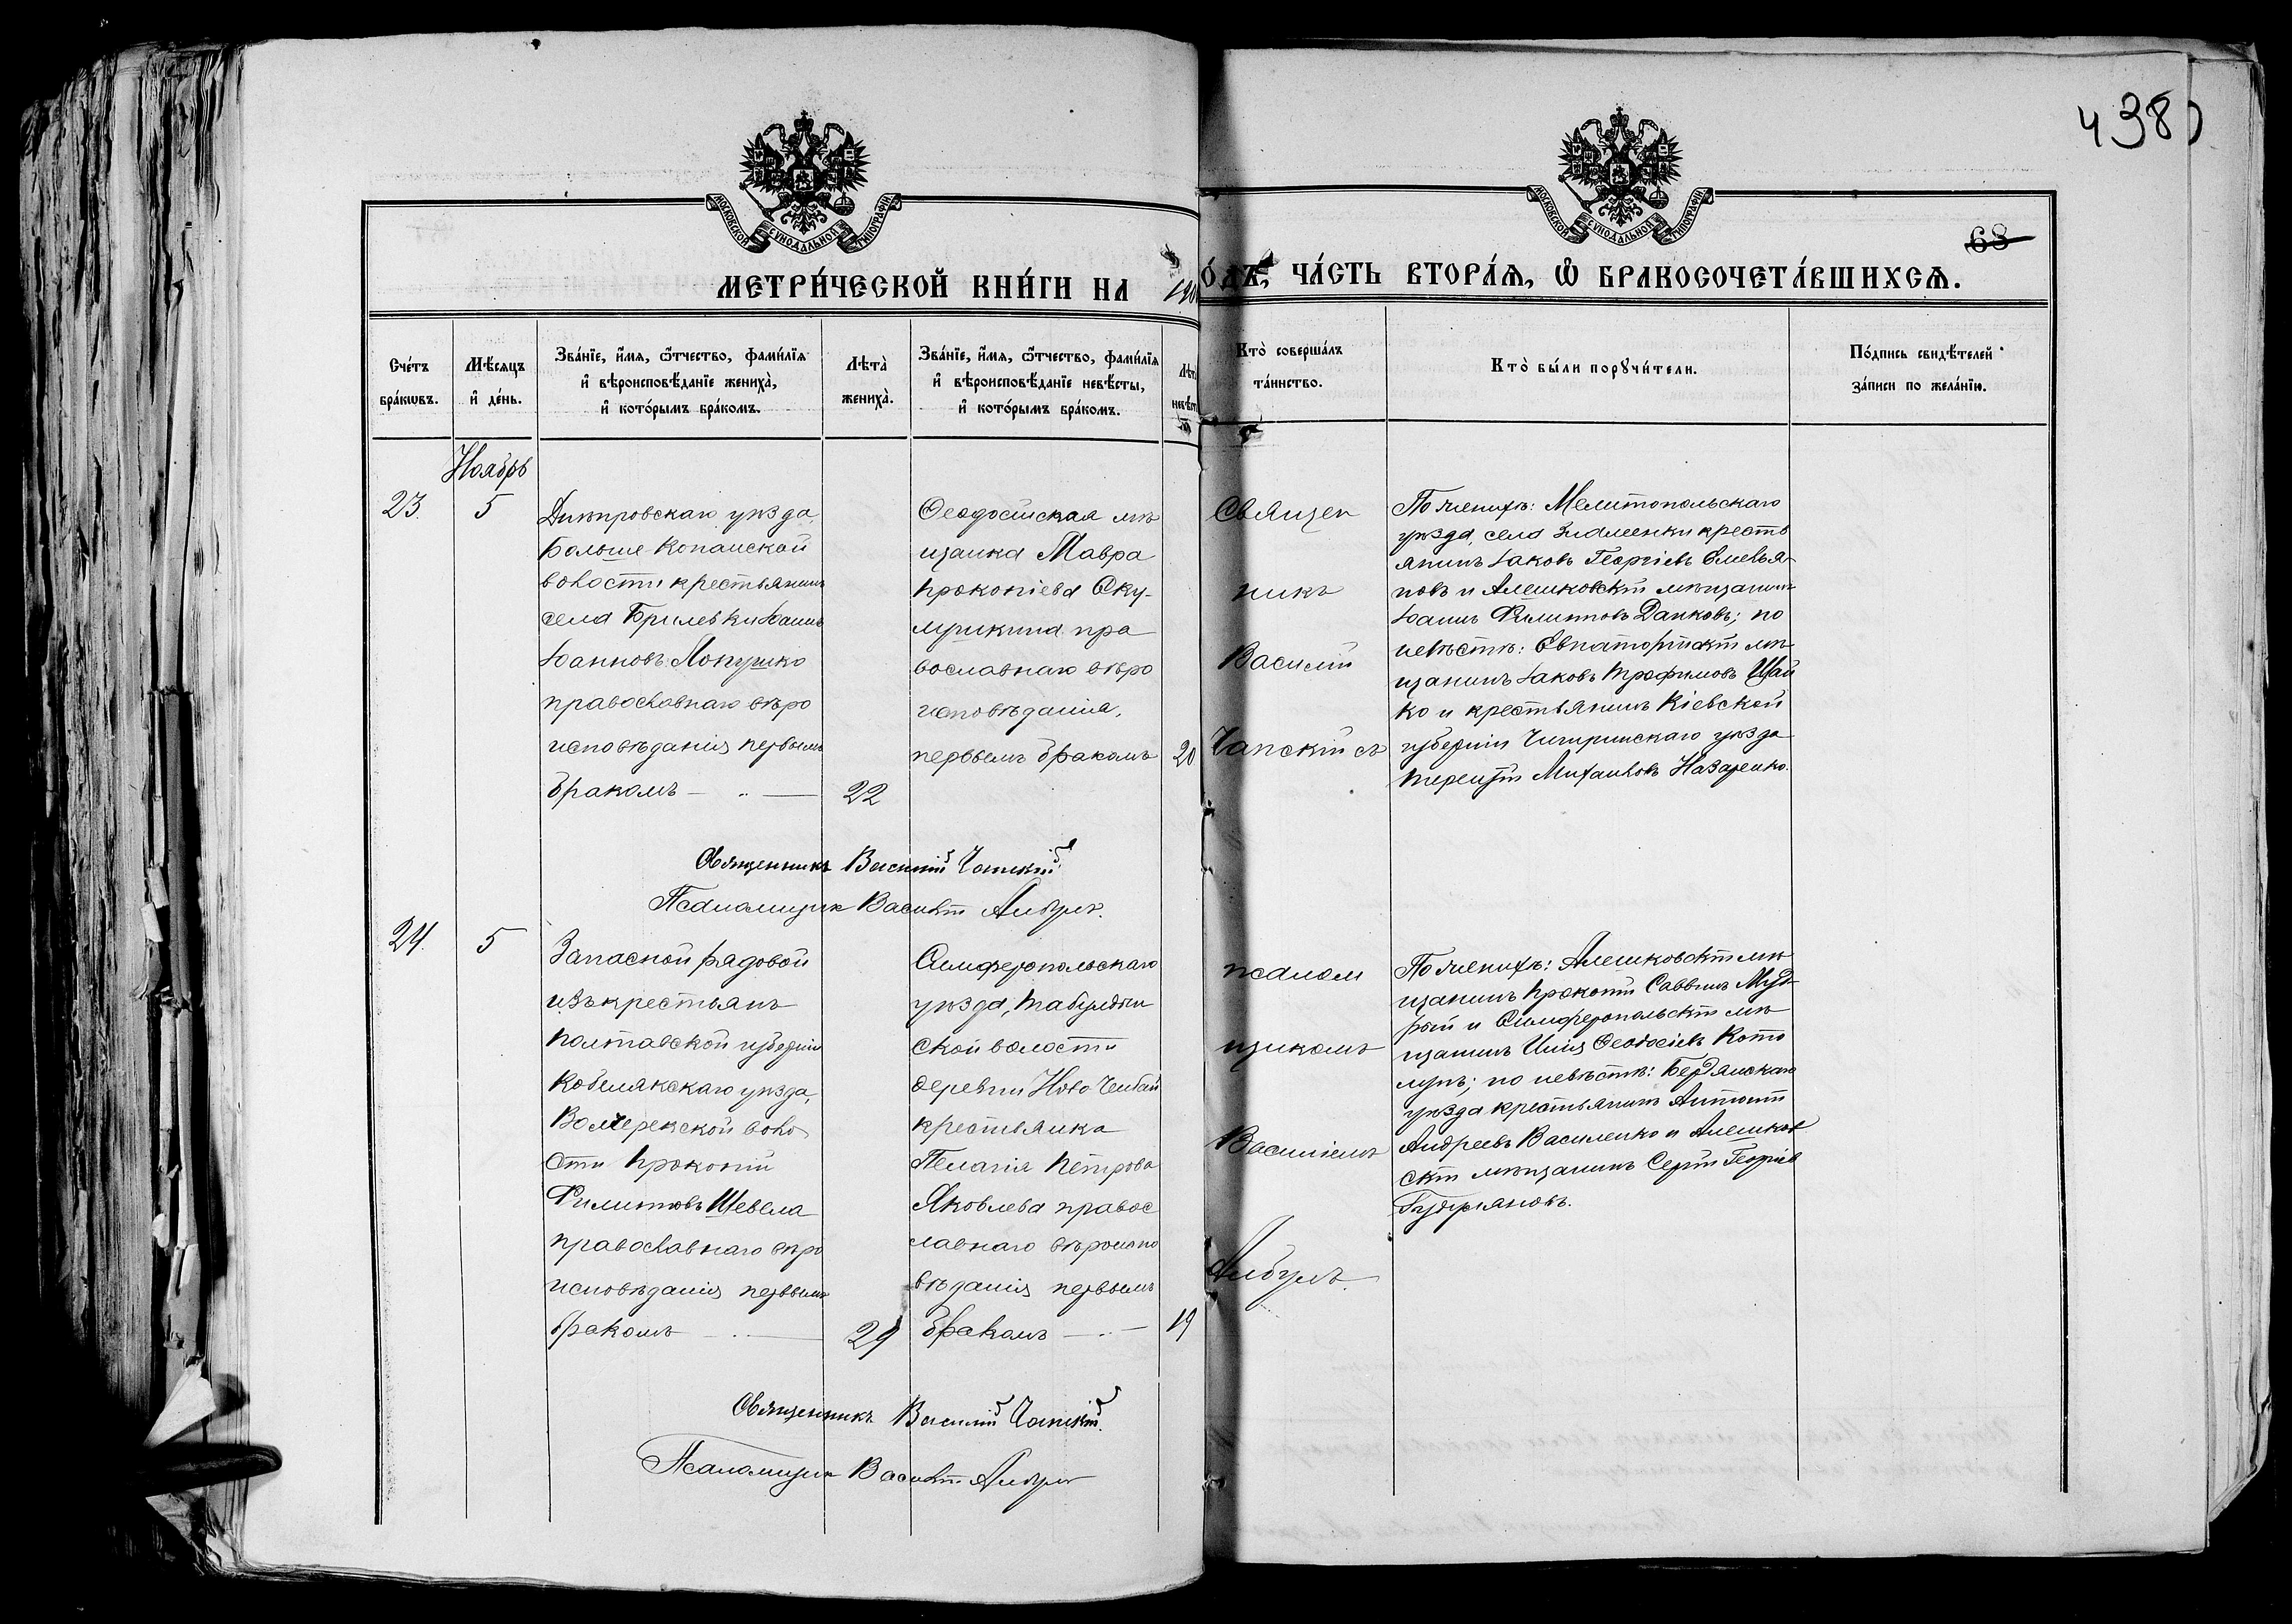 4380
МОСКОВСКОЙ СѴНОДАЛЬНОЙ ТИПОГРАФІИ
МОСКОВСКОЙ СѴНОДАЛЬНОЙ ТИПОГРАФІИ
68
МЕТРИ́ЧЕСКОЙ КНИ́ГИ НА
О́ДЪ, ЧА́СТЬ ВТОРА́Ѧ, Ѽ БРАКОСОЧЕТА́ВШИХСѦ.
Сче́тъ бра́кωвъ.
Мѣ́сѧцъ и҆ де́нь.
Зва́нїе, и҆́мѧ, ѻ҆́тчество, фами́лїѧ
и҆ вѣроисповѣ́данїе жениха̀,
и҆ кото́рымъ бра́комъ.
Лѣта̀ жениха̀.
Зва́нїе, и҆́мѧ, ѻ҆́тчество, фами́лїѧ
и҆ вѣроисповѣ́данїе невѣ́сты,
и҆ кото́рымъ бра́комъ.
Кто̀ соверша́лъ
та́инство.
Кто̀ бы́ли порꙋчи́тели.
По́дпись свидѣ́телей
за́писи по жела́нїю.
Ноябрь
23.
5
Днѣпровскаго уѣзда,
Больше-Копанской
волости крестьянинъ
села Брилевки Іоаннъ
Іоанновъ Лопушко
православнаго вѣро
исповѣданія первымъ
бракомъ
22
Ѳеодосійская мѣ
щанка Мавра
Прокопіева
пра
вославнаго вѣро
исповѣданія,
первымъ бракомъ
20
Священ
никъ
Василій
Чапскій съ
По женихѣ: Мелитопольскаго
уѣзда, села Знаменки кресть
янинъ Іаковъ Георгіевъ Емелья
новъ и Алешковскій мѣщанинъ
Іоаннъ Филипповъ Данковъ; по
невѣстѣ: Евпаторійскій мѣ
щанинъ Іаковъ Трофимовъ Шай
ко и крестьянинъ Кіевской
губерніи Чигиринскаго уѣзда
Терентій Михаиловъ Назаренко.
Священникъ Василій Чапскій
Псаломщик Василій Анбулъ.
24.
5
Запасной рядовой
изъ крестьянъ
Полтавской губерніи
Кобелякскаго уѣзда,
воло
сти Прокопій
Филипповъ Шевела
православнаго вѣро
исповѣданія первымъ
бракомъ
29
Симферопольскаго
уѣзда, Табулдын
ской волости
деревни Ново
крестьянка
Пелагія Петрова
Яковлева правос
лавнаго вѣроиспо
вѣданія первымъ
бракомъ
19
псалом
щикомъ
Василіемъ
Анбулъ.
По женихѣ: Алешковскій мѣ
щанинъ Прокопій Саввинъ Муд
рый и Симферопольскій мѣ
щанинъ Илія Ѳеодосіевъ
по невѣстѣ: Бердянскаго
уѣзда крестьянинъ Антоній
Андреевъ Василенко и Алешков
скій мѣщанинъ Сергій Георгіев
Священникъ Василій Чапскій.
Псаломщик Василій Анбулъ